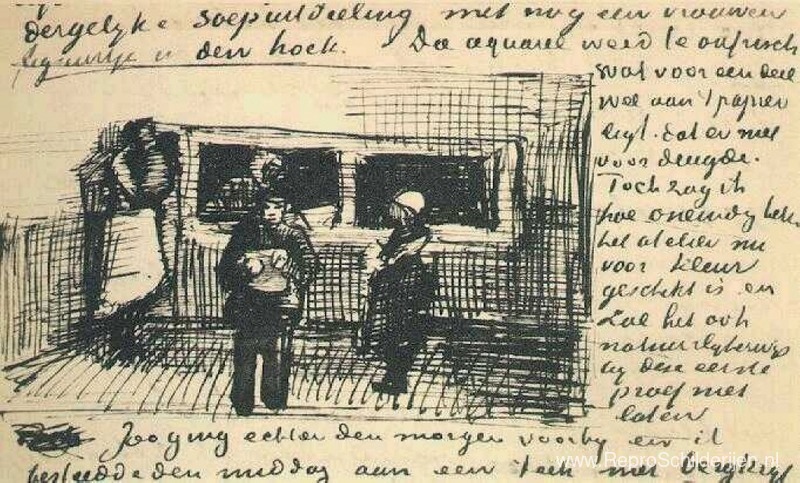 dergelyke soepuitdeeling met nog een vrouwen
figuurtje in den hoek. De aquarel werd te onfrisch
wat voor een deel
wel aan 't papier
ligt. dat er niet
voor deugde.
Toch zag ik
hoe oneindig beter
het atelier nu
voor kleur
geschikt is en
zal het ook
natuurlyk by
deze eerste
proef niet
laten
Zoo ging echter den morgen voorby en ik
besteedde den middag aan een teek met bergkryt
www.ReproSchilderijen.nl